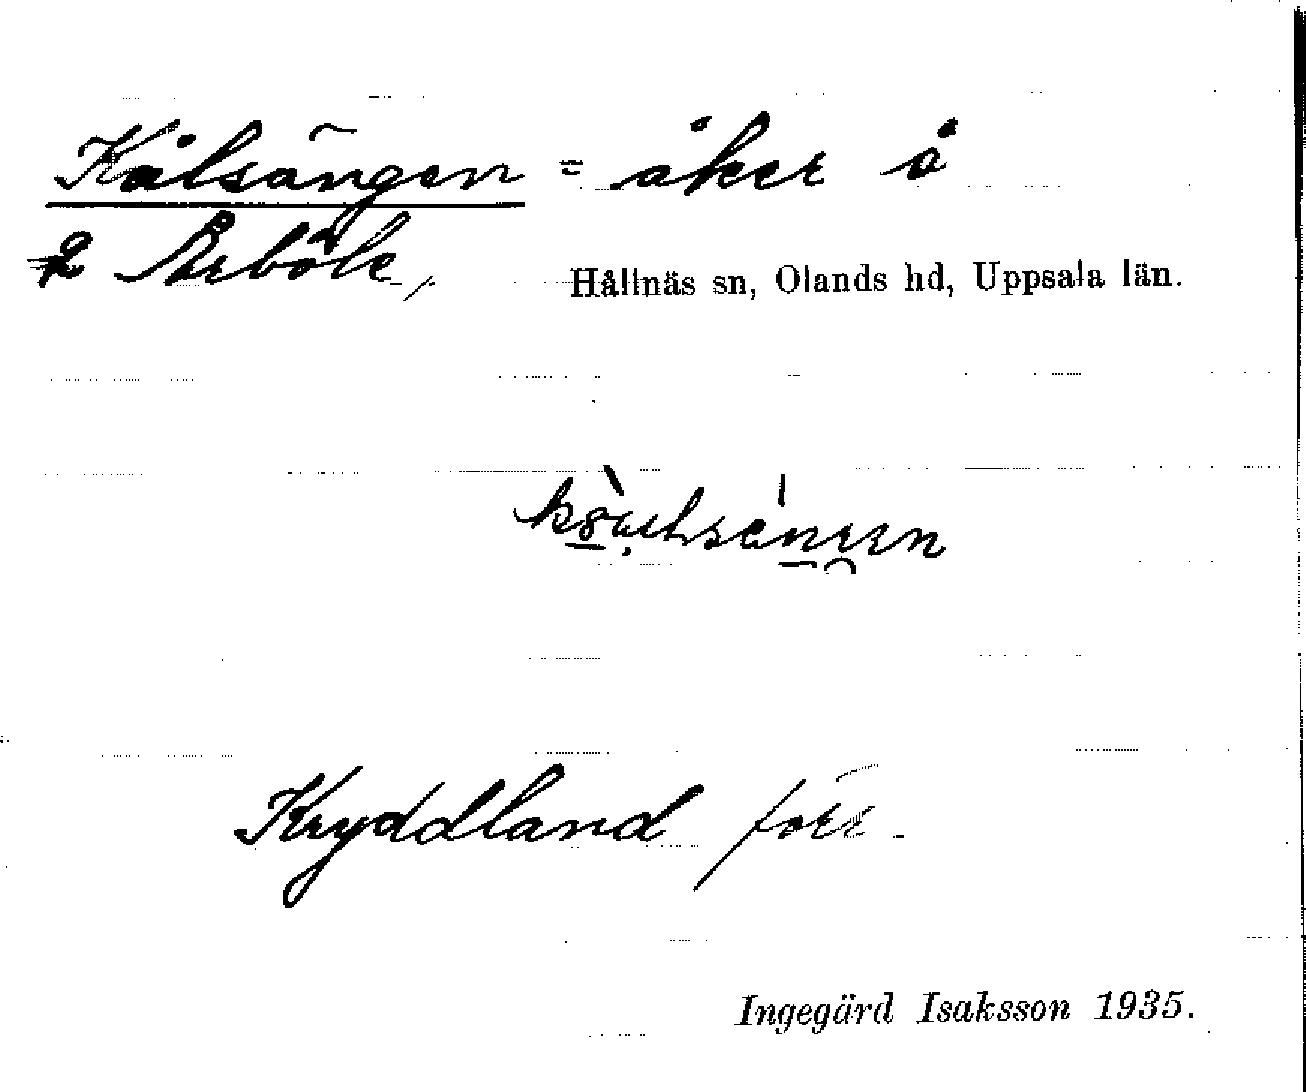 Kålsängen = åker å
2 Årböle,
Hållnäs sn, Olands hd, Uppsala län.
Kryddland förr.
Ingegärd Isaksson 1935.